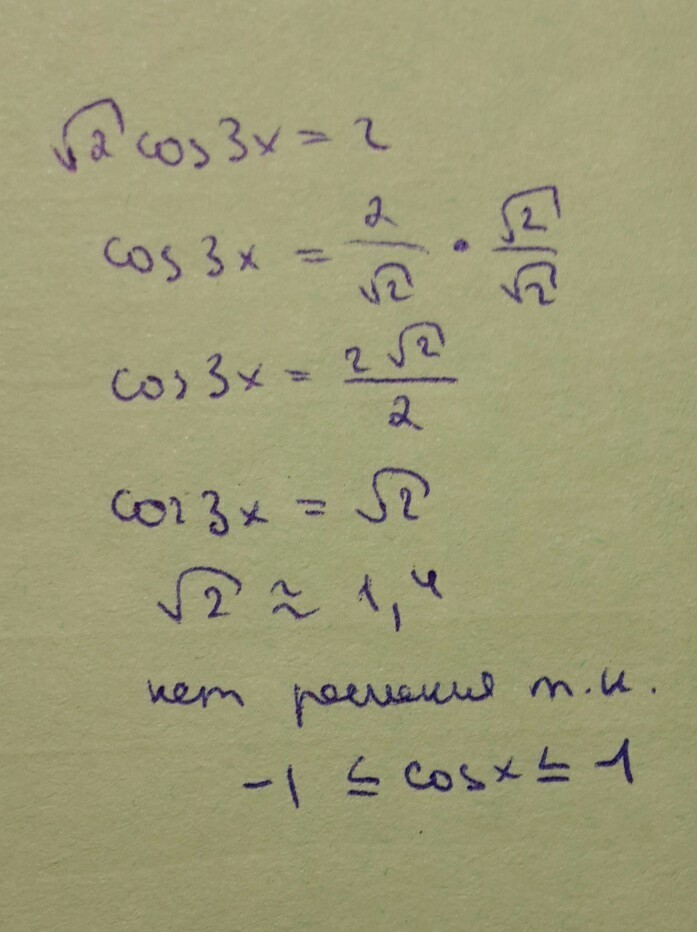 √2 cos 3x = 2
cos 3x = 2/√2 • √2/√2
cos 3x = 2√2/2
cos 3x = √2
√2 ≃ 1,4
нет решения т.к.
-1 ≤ cos x ≤ 1